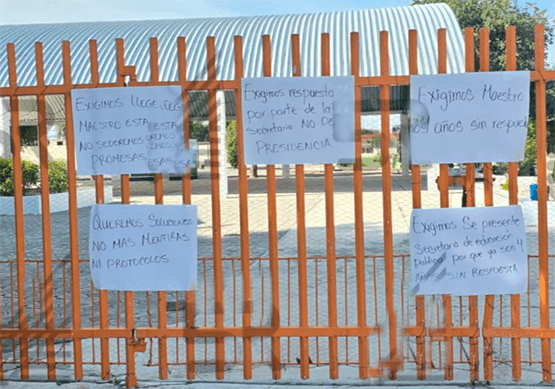 EXIGIMOS LLEGE
MAESTRO ESTA
NO SEDEREMOS
PROMESAS
Exigimos respuesta
por parte de la
secretaria NO DE
PRESIDENCIA
Exigimos Maestro
años sin
QUEREMOS SOLUCIONES
NO MAS MENTIRAS
NI PROTOCOLOS
Exigimos Se presente
Secretaria de educación
publica por que ya son 4
AÑOS SIN RESPUESTA